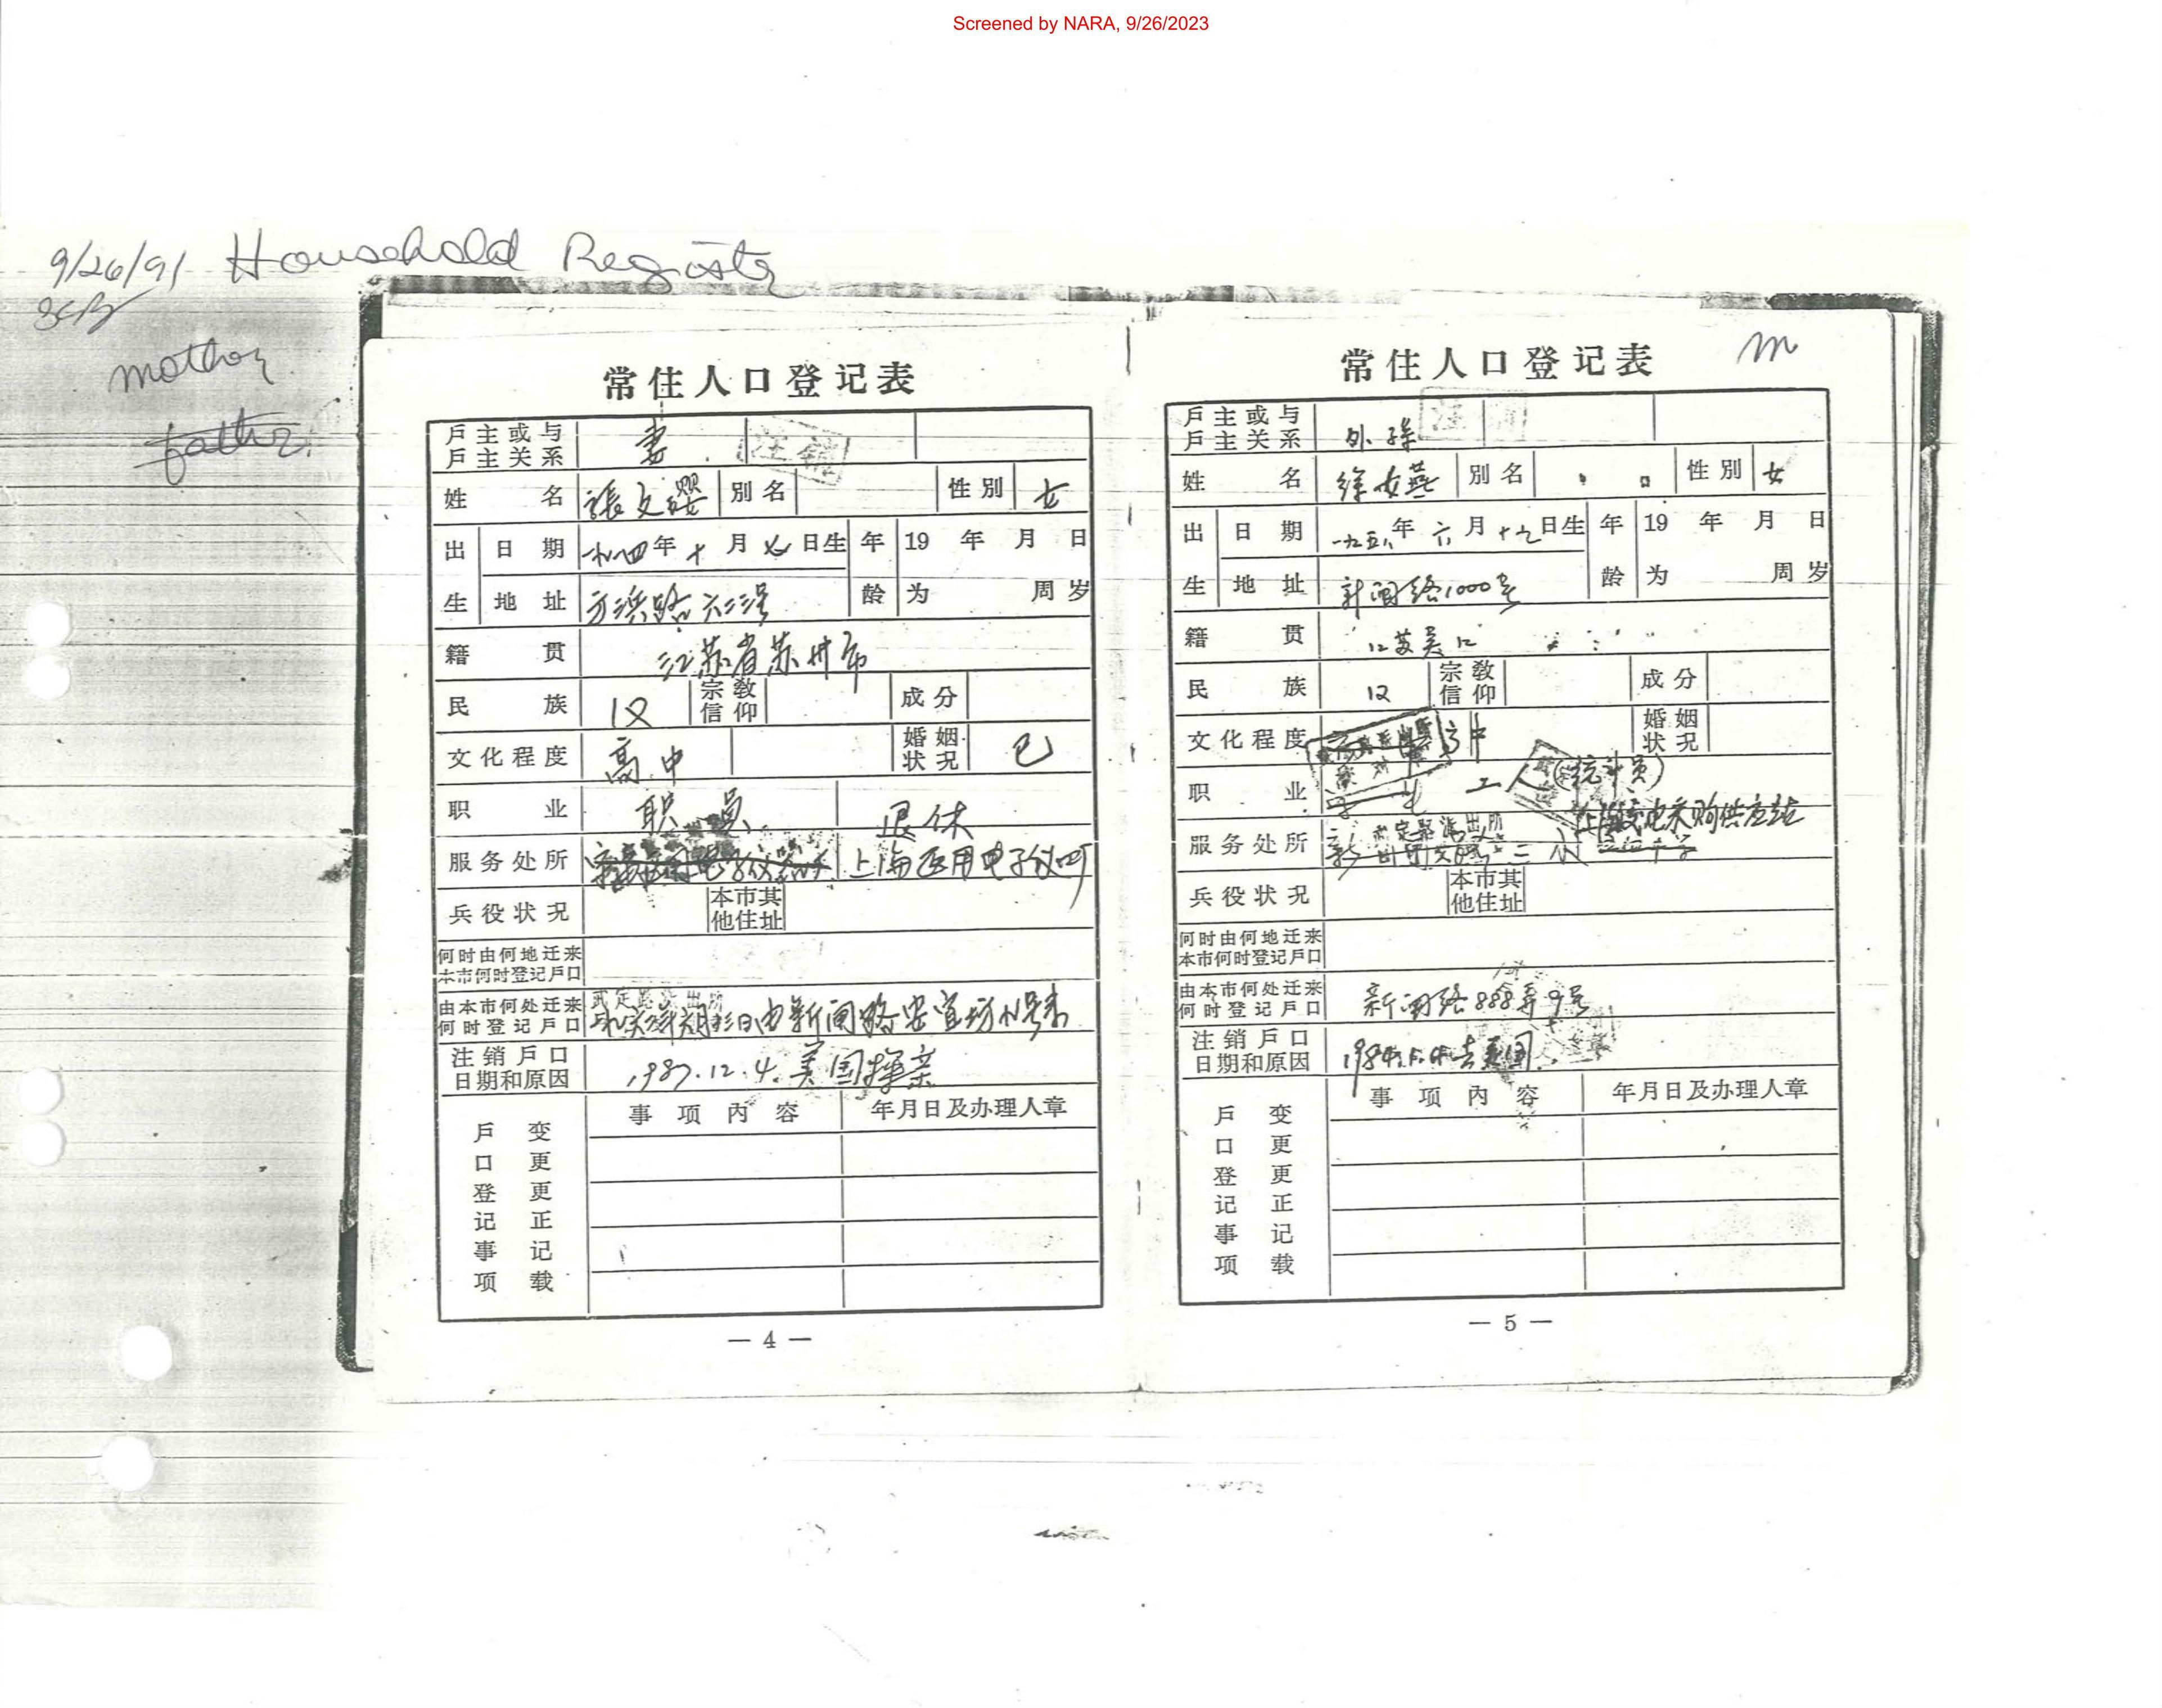 Screened by NARA, 9/26/2023
9/26/91 Household Register
mother
father
常住人口登记表
户主或与户主关系 妻 注销
姓名 張文璎 别名 性别 女
出生 日期 年十月七日生 年龄 19 年 月 日
地址 方浜路六三三号 为 周岁
籍贯 江苏省苏州市
民族 汉 宗教信仰 成分
文化程度 高中 婚姻状况 已
职业 职员 退休
服务处所 上海医用电子仪
兵役状况 本市其他住址
何时由何地迁来本市何时登记户口
由本市何处迁来何时登记户口 日由新闸路 来
注销户口日期和原因 1987.12.4. 美国探亲
户口登记事项变更更正记载 事项内容 年月日及办理人章
— 4 —
m
常住人口登记表
户主或与户主关系 外孫 注销
姓名 徐女燕 别名 性别 女
出生 日期 一九五八年六月十九日生 年龄 19 年 月 日
地址 新闸路1000号 为 周岁
籍贯 江苏吴江
民族 汉 宗教信仰 成分
文化程度 高中 婚姻状况
职业 学生 工人(统计员)
服务处所 上海 采购供应站
兵役状况 本市其他住址
何时由何地迁来本市何时登记户口
由本市何处迁来何时登记户口 新闸路888弄9号
注销户口日期和原因 去美国
户口登记事项变更更正记载 事项内容 年月日及办理人章
— 5 —